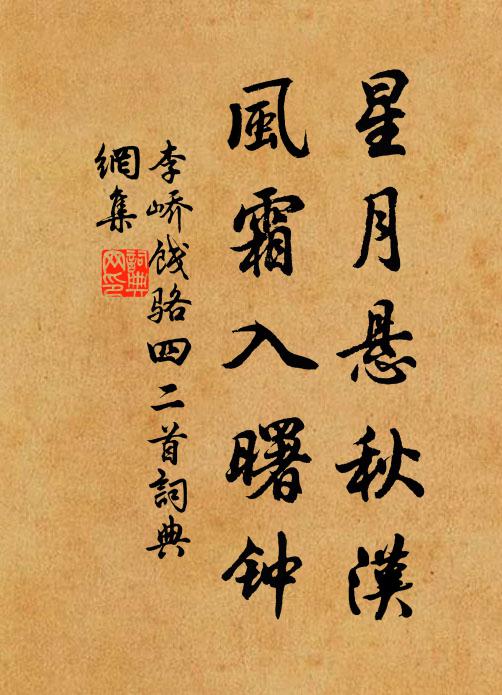 星月悬秋漢
風霜入曙钟
李峤餞骆四二首詞典
網集
詞典網印